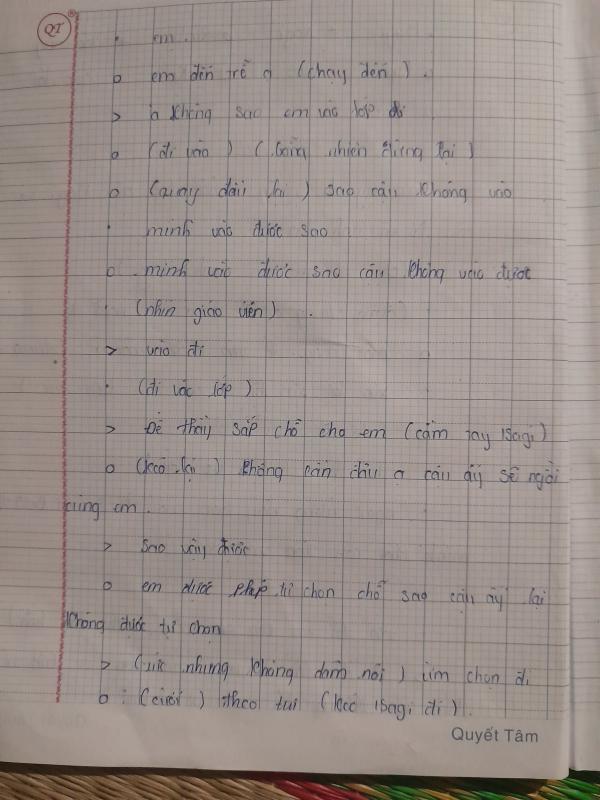 QT
· em.
o em đến trễ ạ (chạy đến).
> à không sao em vào lớp đi
o (đi vào) (bỗng nhiên dừng lại)
o (quay đầu lại) sao cậu không vào
· mình vào được sao
o mình vào được sao cậu không vào được
· (nhìn giáo viên).
> vào đi
· (đi vào lớp)
> Để thầy sắp chỗ cho em (cầm tay ISagi)
o (kéo lại) không cần đâu ạ cậu ấy sẽ ngồi
cùng em.
> sao vậy được
o em được phép tự chọn chỗ sao cậu ấy lại
không được tự chọn
> (tức nhưng không dám nói) ừm chọn đi
o : (cười) theo tui (kéo ISagi đi).
Quyết Tâm